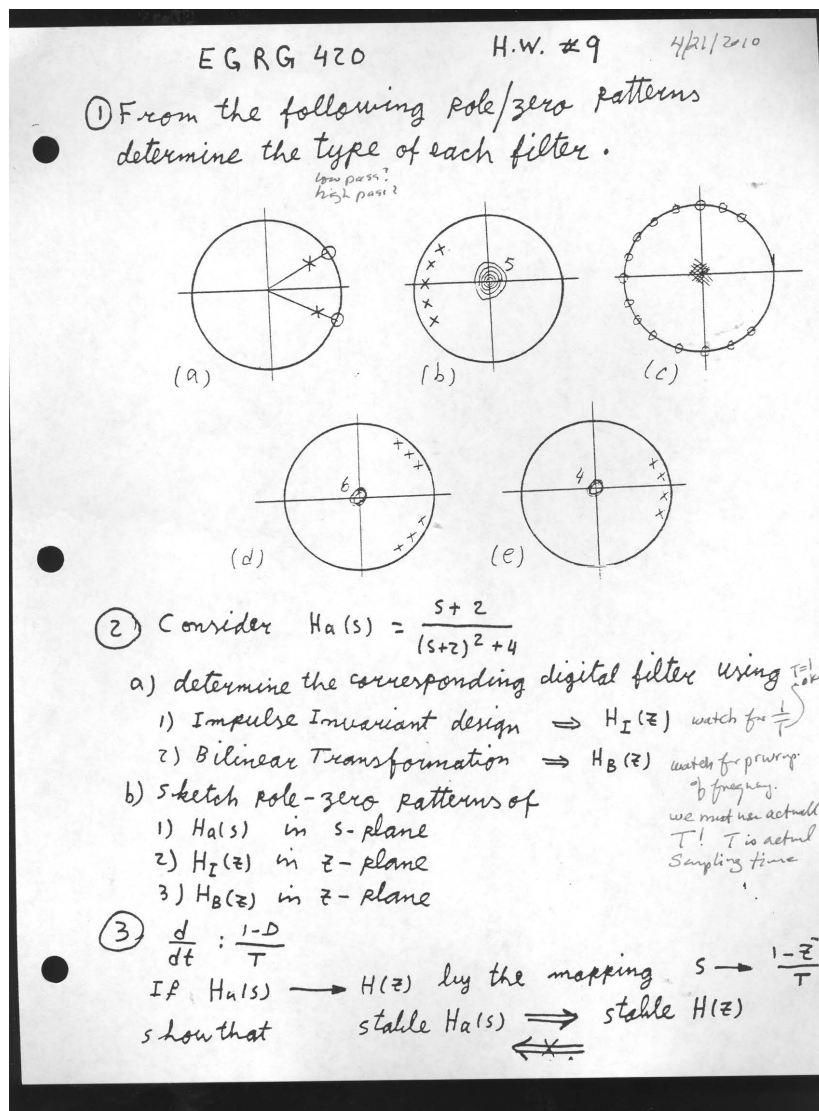 EGRG 420 H.W. #9 4/21/2010
① From the following pole/zero patterns
determine the type of each filter.
low pass?
high pass?
5
(a) (b) (c)
6 4
(d) (e)
② Consider Ha(s) = s+2 / (s+2)² + 4
a) determine the corresponding digital filter using T=1
1) Impulse Invariant design ⇒ H_I(z) watch for 1/T
2) Bilinear Transformation ⇒ H_B(z) watch for prewarp.
of frequency.
b) sketch pole-zero patterns of we must use actual
1) Ha(s) in s-plane T! T is actual
2) H_I(z) in z-plane Sampling time
3) H_B(z) in z-plane
③ d/dt : 1-D/T
If Ha(s) → H(z) by the mapping s → 1-z⁻/T
show that stable Ha(s) ⇒ stable H(z)